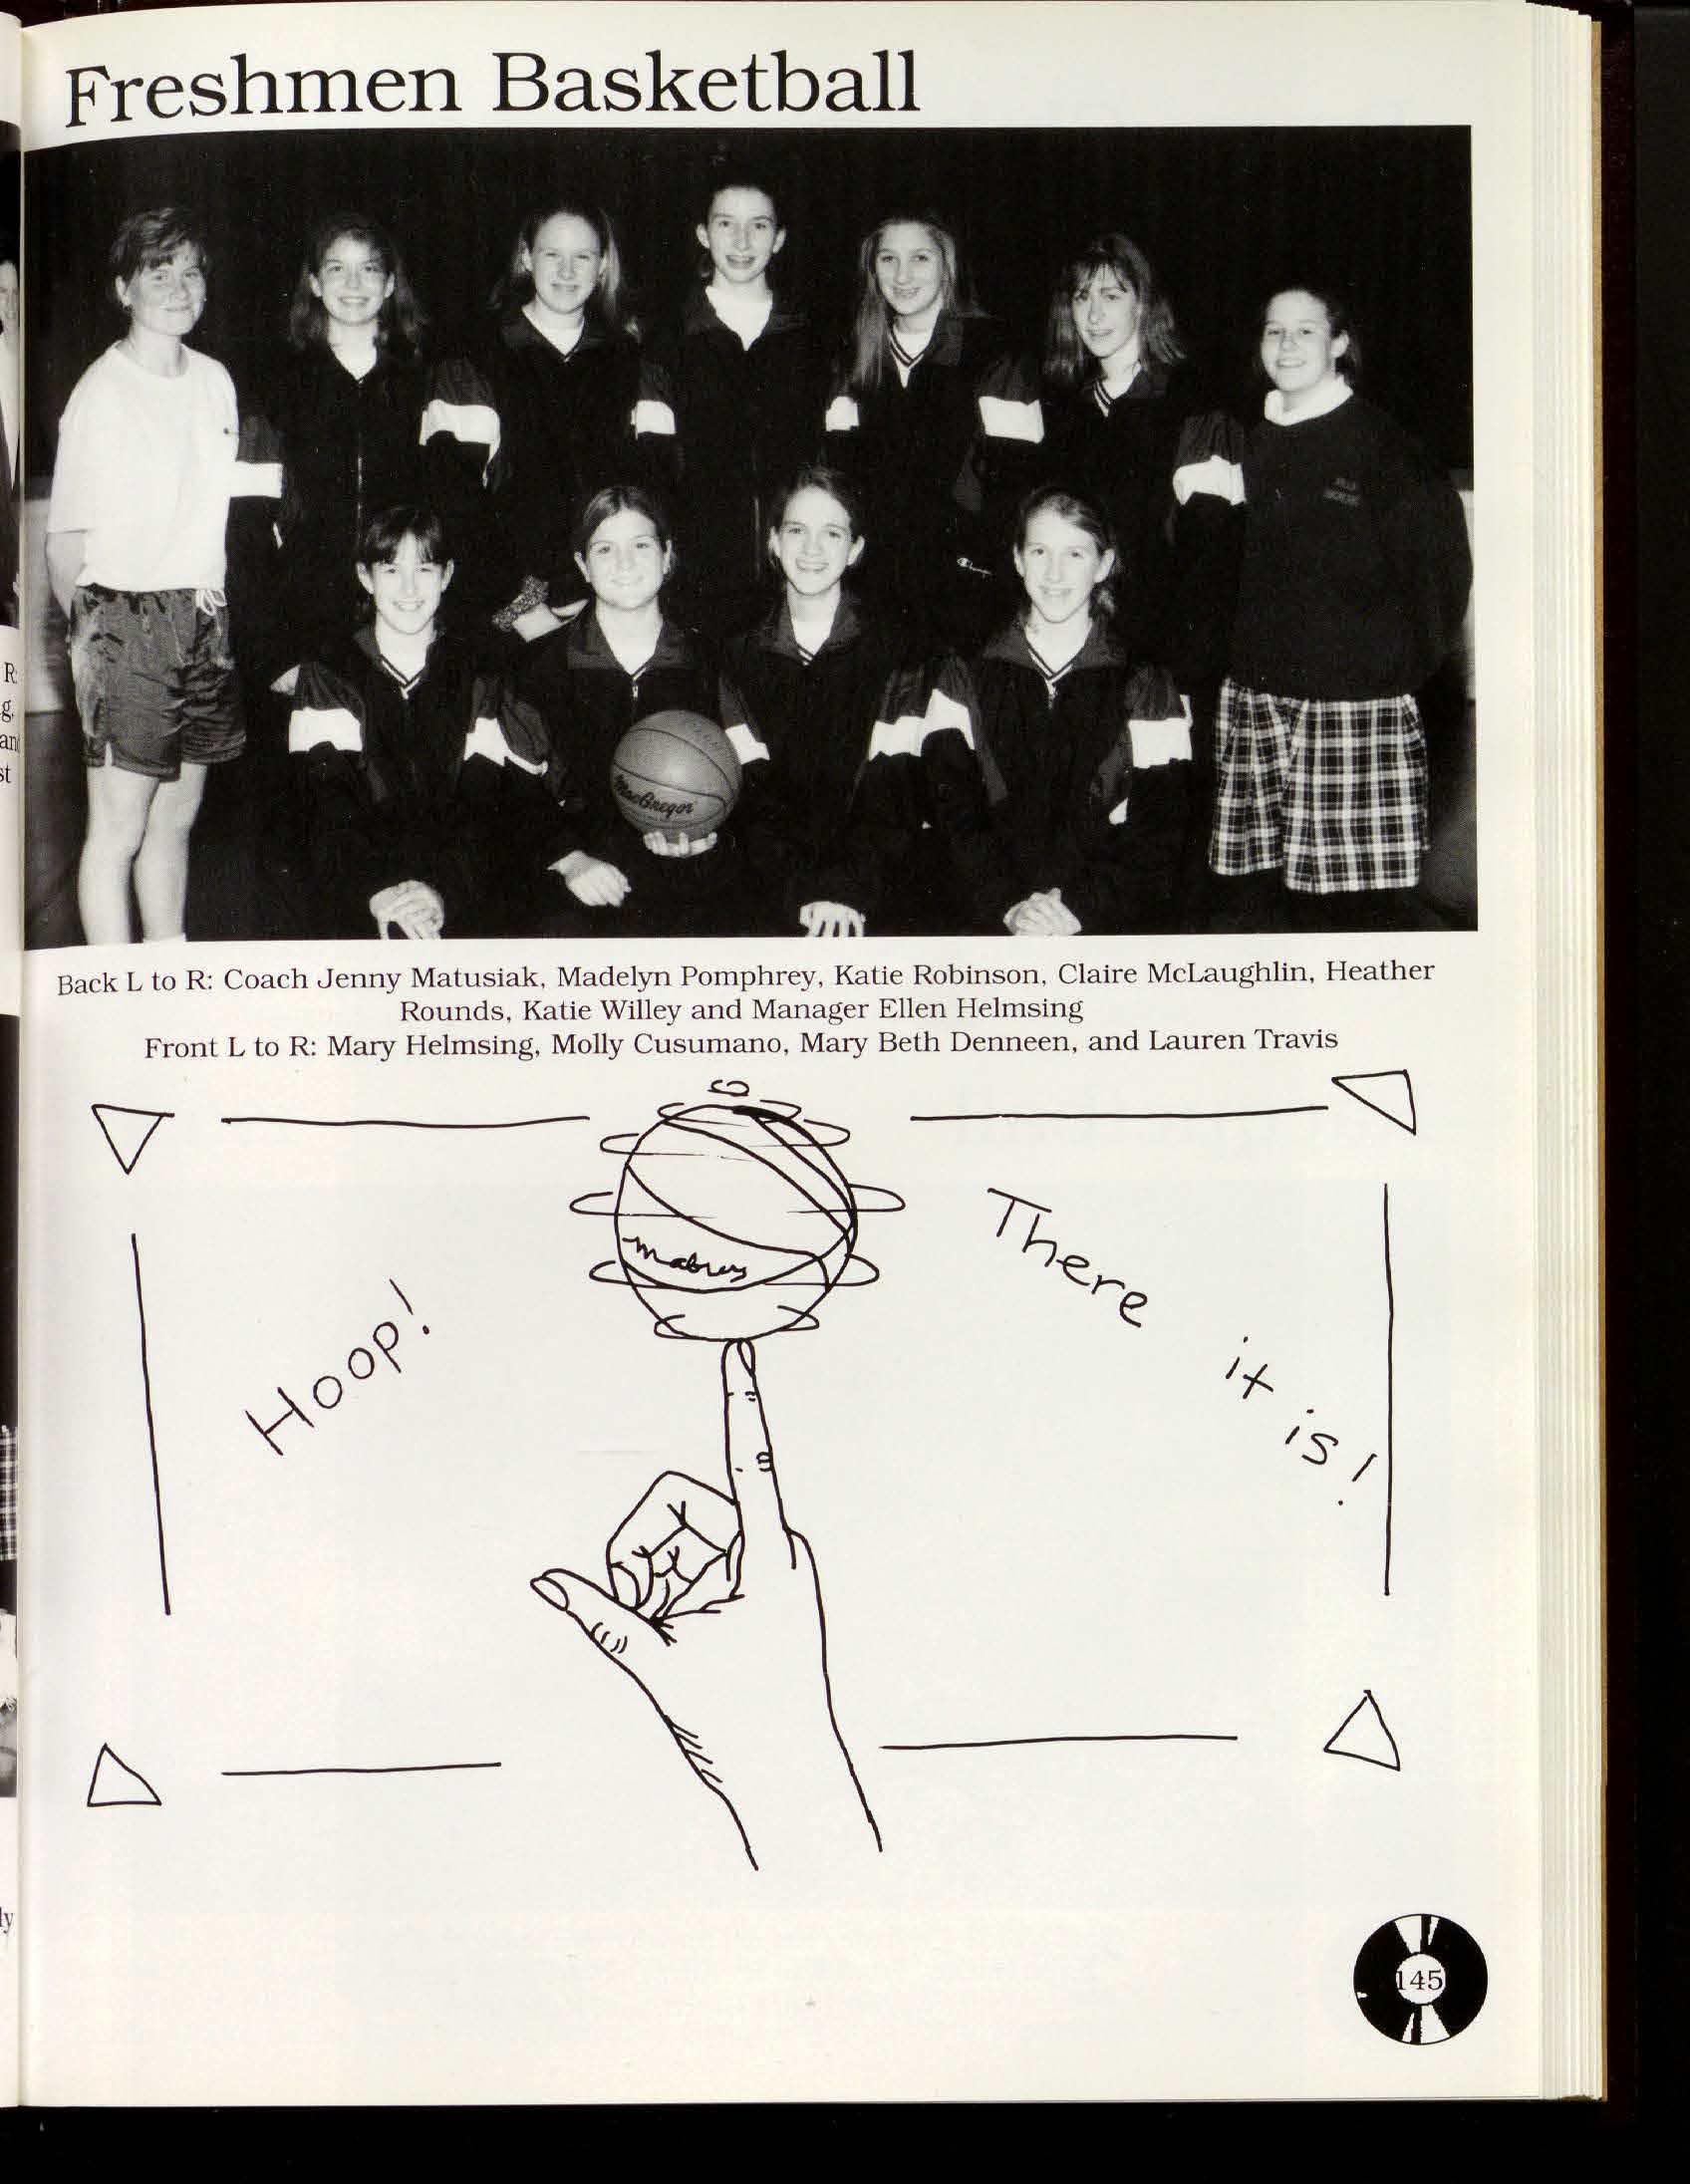 Freshmen Basketball
MacGregor
Back L to R: Coach Jenny Matusiak, Madelyn Pomphrey, Katie Robinson, Claire McLaughlin, Heather
Rounds, Katie Willey and Manager Ellen Helmsing
Front L to R: Mary Helmsing, Molly Cusumano, Mary Beth Denneen, and Lauren Travis
Hoop!
There it is!
145
R:
g,
an
st
ly